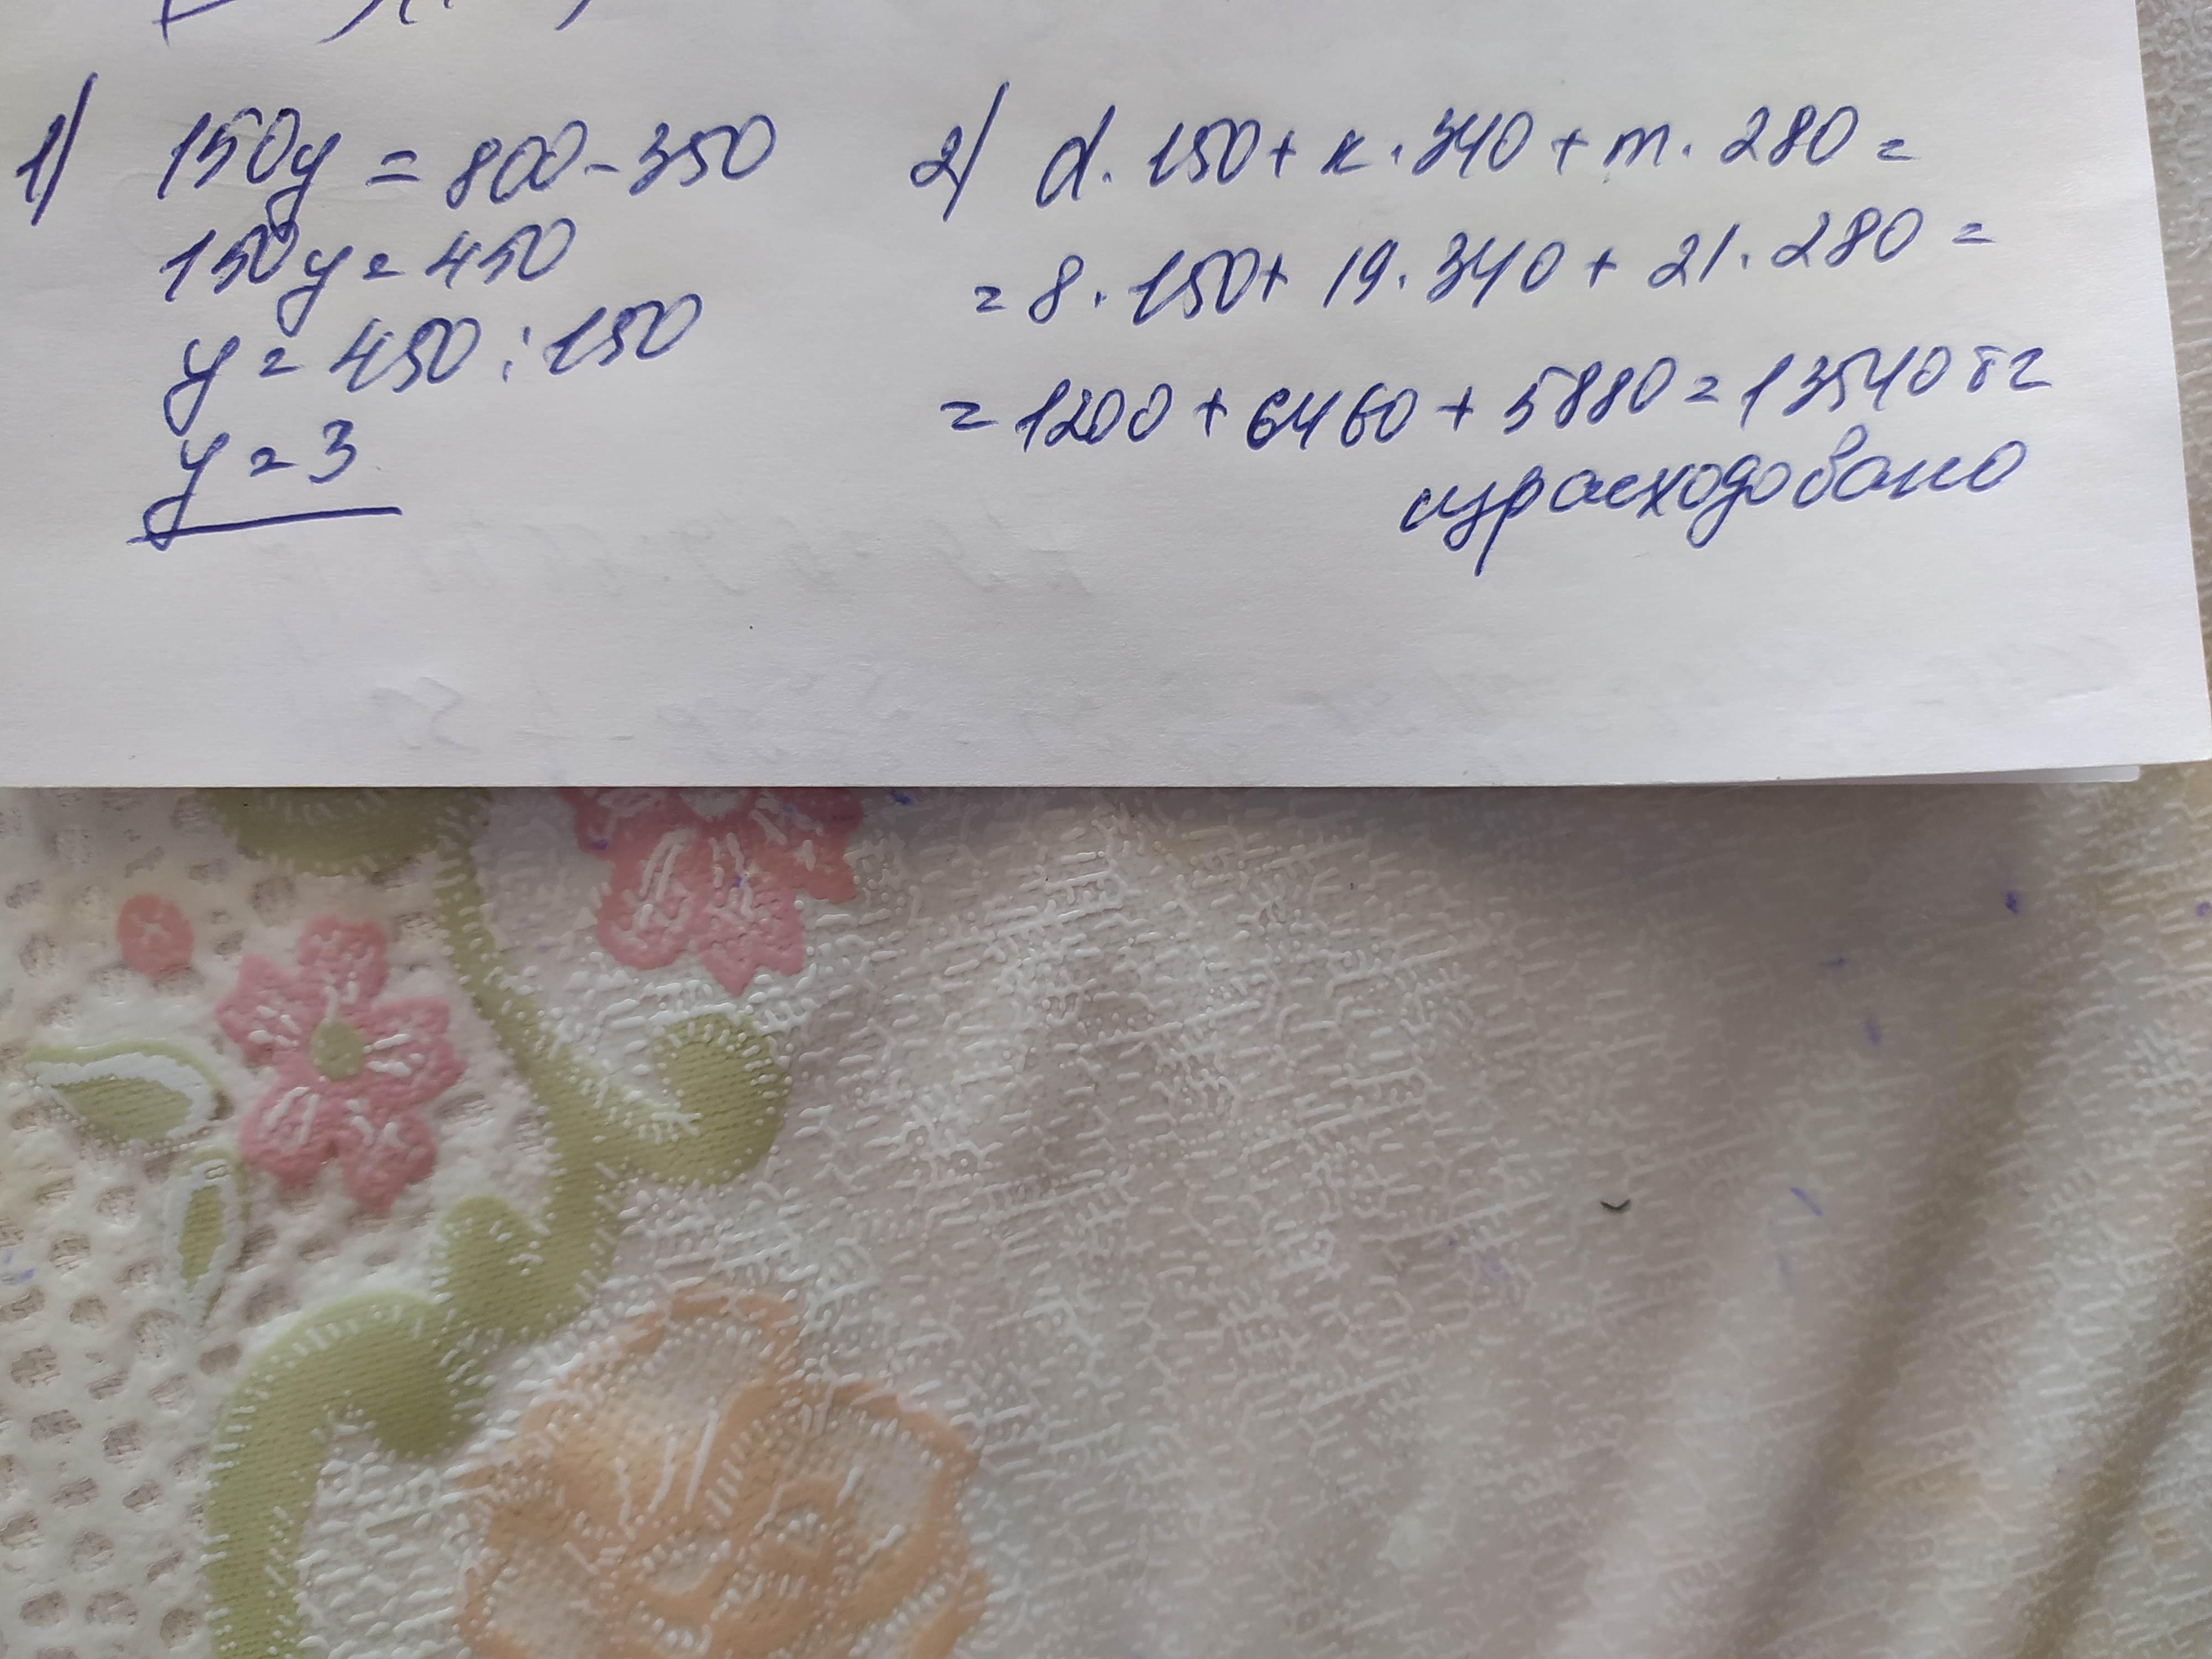 1) 150y = 800 - 350
150y = 450
y = 450 : 150
y = 3
2) d · 150 + к · 340 + m · 280 =
= 8 · 150 + 19 · 340 + 21 · 280 =
= 1200 + 6460 + 5880 = 13540 тг
израсходовано